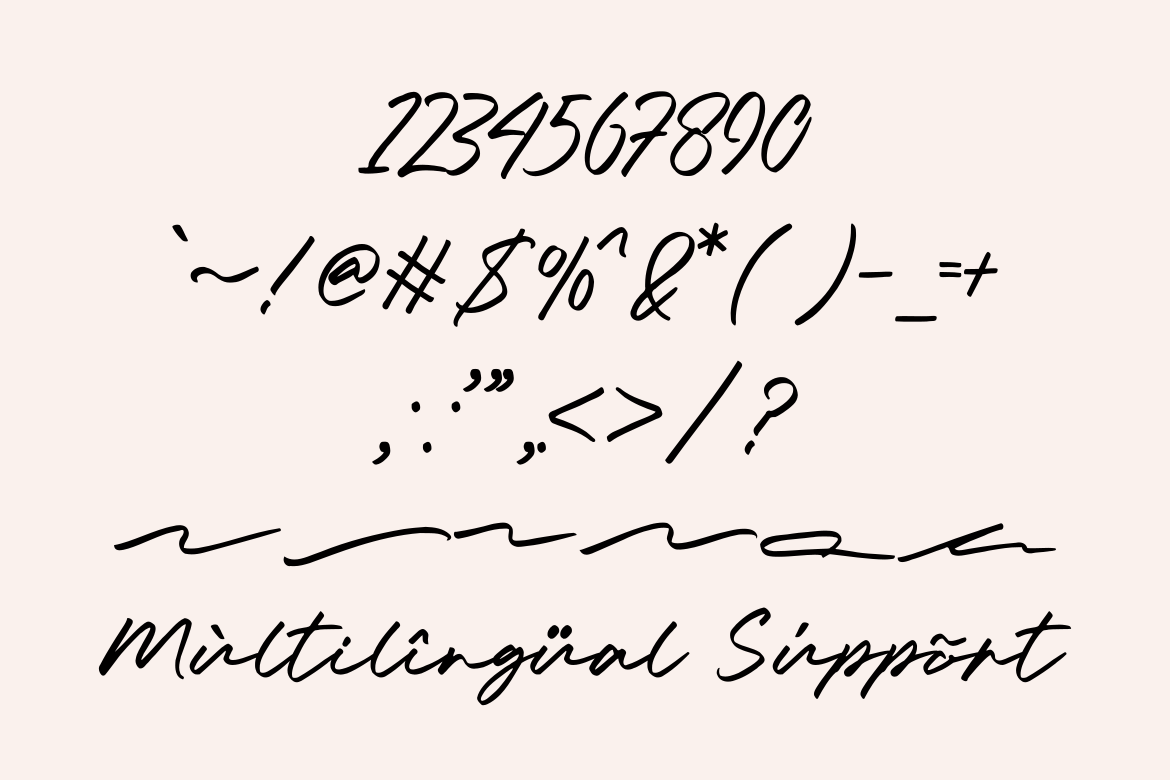 1234567890
`~!@#$%^&*()-_=+
,:·’”„.<>/?
Mùltilîngüal Súppõrt